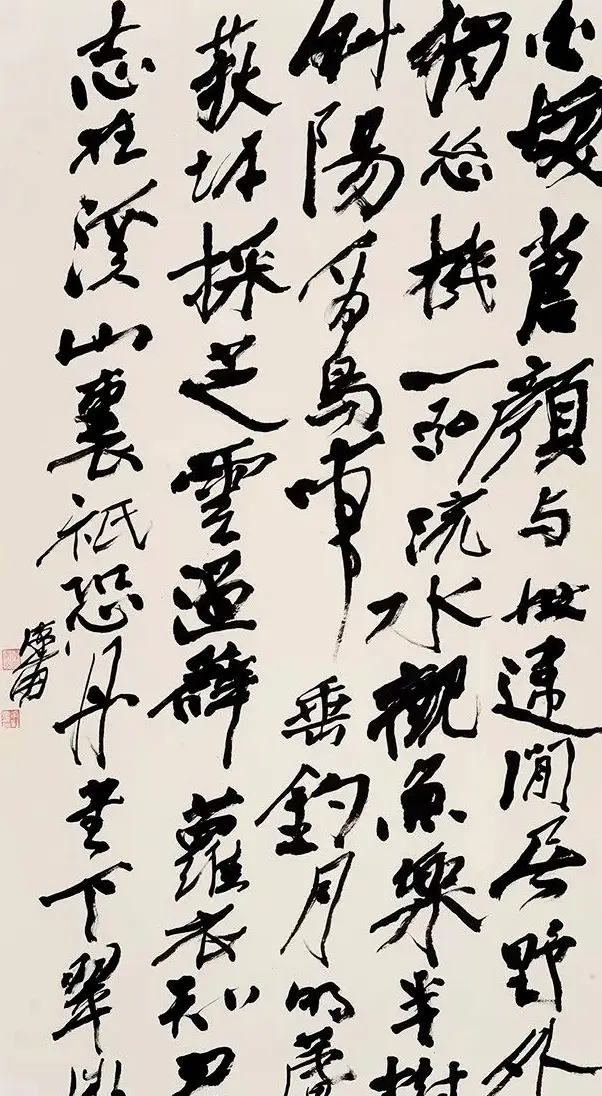 白髮蒼顏与世違閒居野外
獨忘機一流水觀魚樂半樹
斜陽看鳥飛垂釣月明蘆
荻採芝雲薜蘿衣知君
志在溪山裏祇恐丹書下翠微